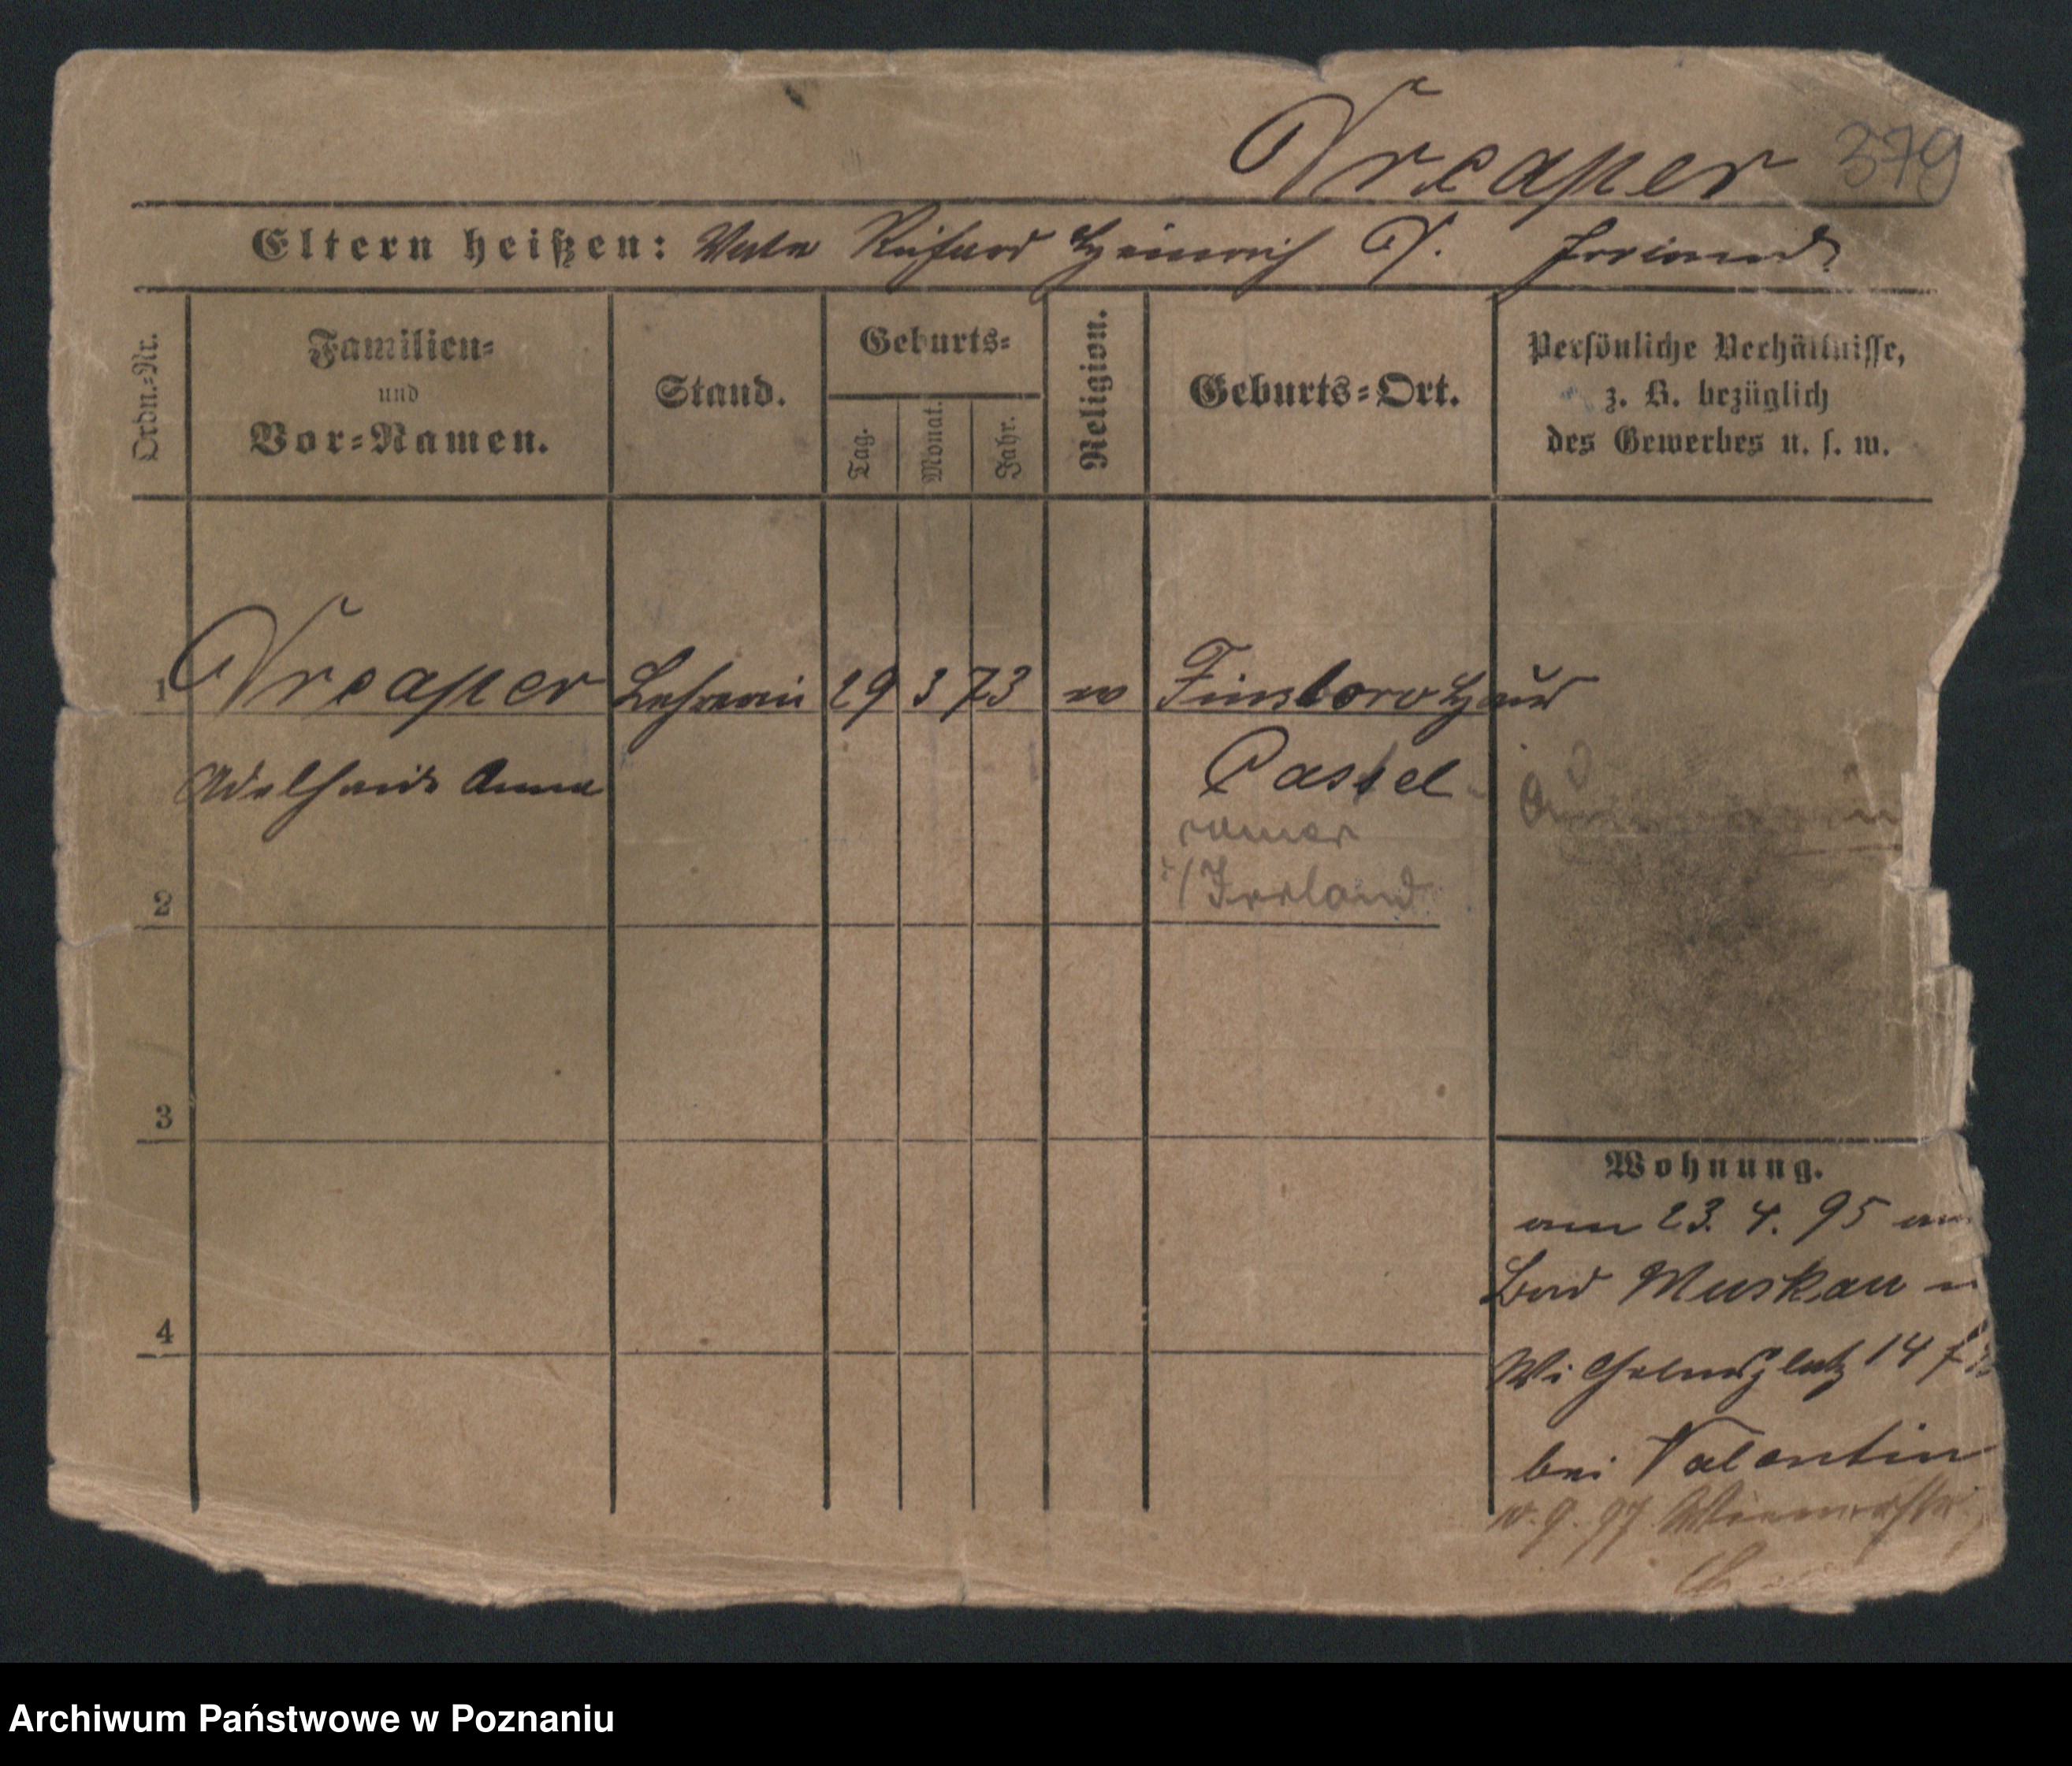 Vreaper 379
Eltern heißen: Vater Richard Heinrich V.
Ordn.-Nr.
Familien-
und
Vor-Namen.
Stand.
Geburts-
Tag.
Monat.
Jahr.
Religion.
Geburts-Ort.
Persönliche Verhältnisse,
z. B. bezüglich
des Gewerbes u. s. w.
1 Vreaper Lehrerin 29 3 73 Finsboro
Adelheid Anna Castel
ramer
i/ Irrland
2
3
4
Wohnung.
am 23. 4. 95
Bad Muskau
Wilhelmsplatz 14
bei Valentin
9. 97
Archiwum Państwowe w Poznaniu